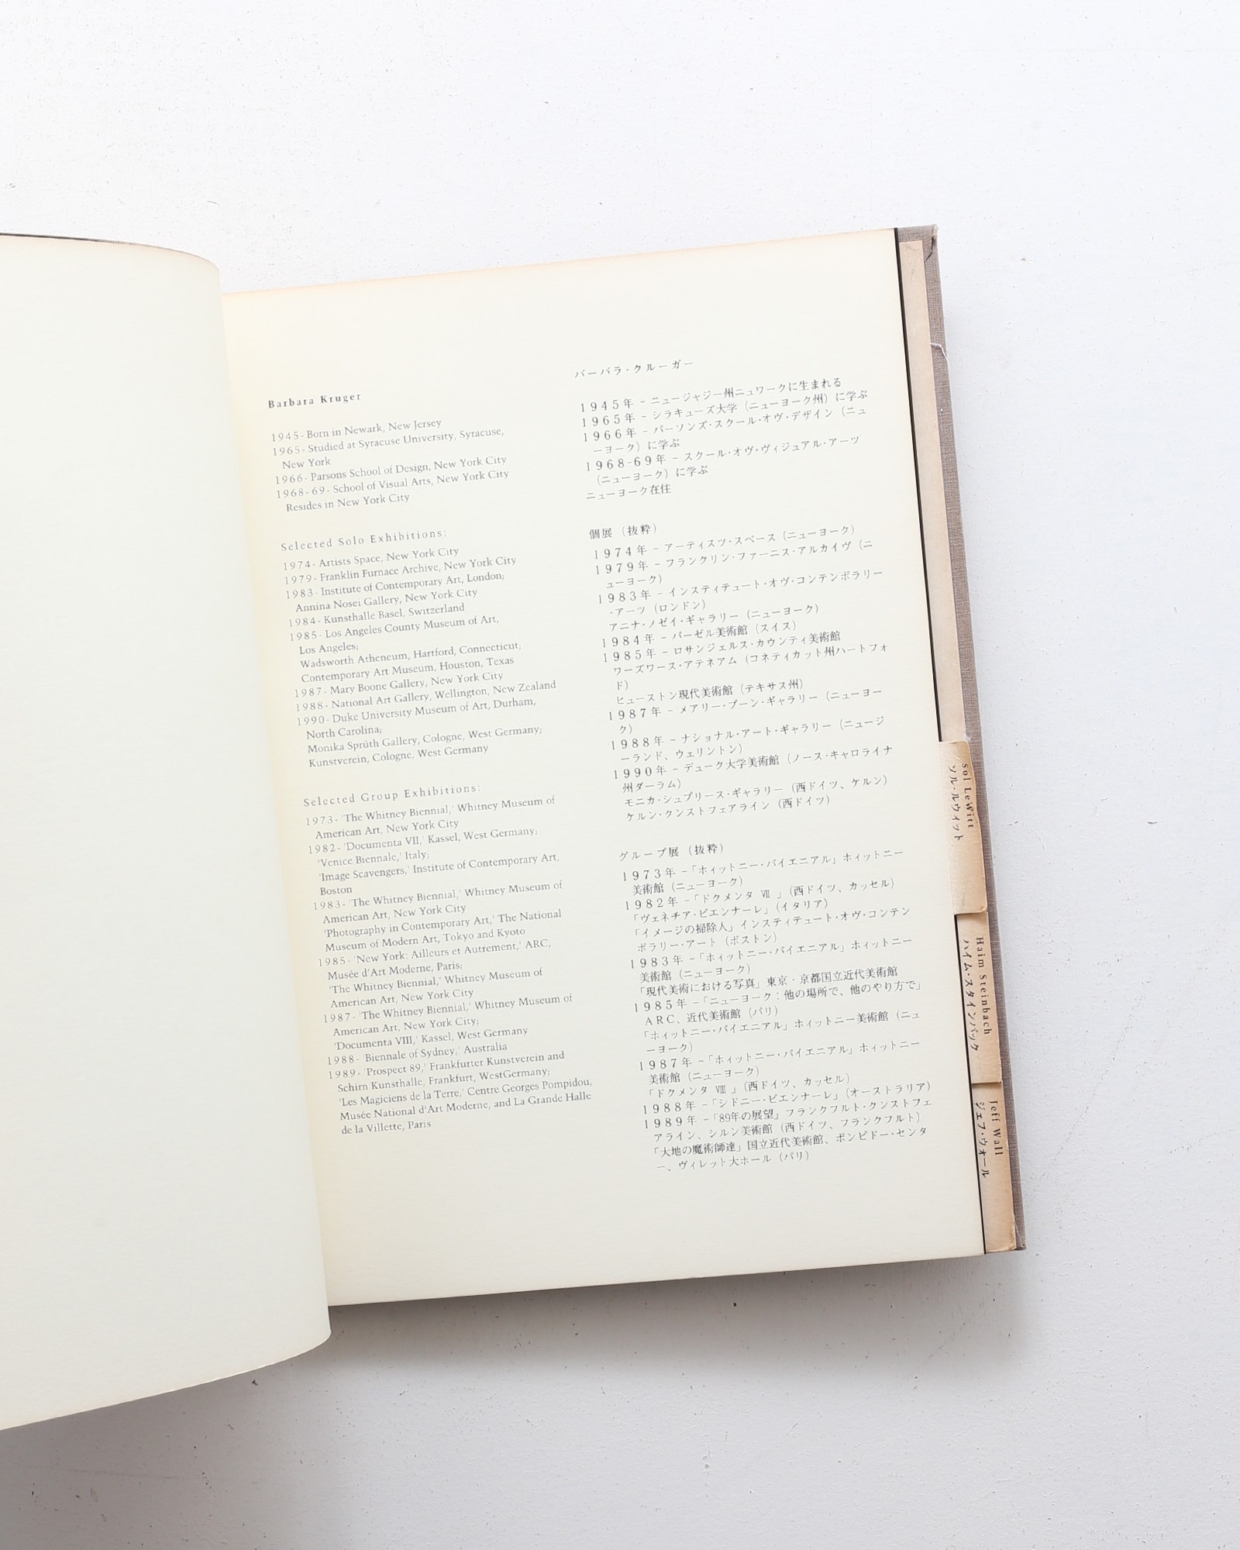 Barbara Kruger
1945- Born in Newark, New Jersey
1965- Studied at Syracuse University, Syracuse,
New York
1966- Parsons School of Design, New York City
1968-69- School of Visual Arts, New York City
Resides in New York City
Selected Solo Exhibitions:
1974- Artists Space, New York City
1979- Franklin Furnace Archive, New York City
1983- Institute of Contemporary Art, London;
Annina Nosei Gallery, New York City
1984- Kunsthalle Basel, Switzerland
1985- Los Angeles County Museum of Art,
Los Angeles;
Wadsworth Atheneum, Hartford, Connecticut;
Contemporary Art Museum, Houston, Texas
1987- Mary Boone Gallery, New York City
1988- National Art Gallery, Wellington, New Zealand
1990- Duke University Museum of Art, Durham,
North Carolina;
Monika Sprüth Gallery, Cologne, West Germany;
Kunstverein, Cologne, West Germany
Selected Group Exhibitions:
1973- 'The Whitney Biennial,' Whitney Museum of
American Art, New York City
1982- 'Documenta VII,' Kassel, West Germany;
'Venice Biennale,' Italy;
'Image Scavengers,' Institute of Contemporary Art,
Boston
1983- 'The Whitney Biennial,' Whitney Museum of
American Art, New York City
'Photography in Contemporary Art,' The National
Museum of Modern Art, Tokyo and Kyoto
1985- 'New York: Ailleurs et Autrement,' ARC,
Musée d'Art Moderne, Paris;
'The Whitney Biennial,' Whitney Museum of
American Art, New York City
1987- 'The Whitney Biennial,' Whitney Museum of
American Art, New York City;
'Documenta VIII,' Kassel, West Germany
1988- 'Biennale of Sydney,' Australia
1989- 'Prospect 89,' Frankfurter Kunstverein and
Schirn Kunsthalle, Frankfurt, WestGermany;
'Les Magiciens de la Terre,' Centre Georges Pompidou,
Musée National d'Art Moderne, and La Grande Halle
de la Villette, Paris
バーバラ・クルーガー
1945年－ニュージャジー州ニュワークに生まれる
1965年－シラキューズ大学（ニューヨーク州）に学ぶ
1966年－パーソンズ・スクール・オヴ・デザイン（ニュ
ーヨーク）に学ぶ
1968-69年－スクール・オヴ・ヴィジュアル・アーツ
（ニューヨーク）に学ぶ
ニューヨーク在住
個展（抜粋）
1974年－アーティスツ・スペース（ニューヨーク）
1979年－フランクリン・ファーニス・アルカイヴ（ニ
ューヨーク）
1983年－インスティテュート・オヴ・コンテンポラリー
・アーツ（ロンドン）
アニナ・ノゼイ・ギャラリー（ニューヨーク）
1984年－バーゼル美術館（スイス）
1985年－ロサンジェルス・カウンティ美術館
ワーズワース・アテネアム（コネティカット州ハートフォ
ド）
ヒューストン現代美術館（テキサス州）
1987年－メアリー・ブーン・ギャラリー（ニューヨー
ク）
1988年－ナショナル・アート・ギャラリー（ニュージ
ーランド、ウェリントン）
1990年－デューク大学美術館（ノース・キャロライナ
州ダーラム）
モニカ・シュプリース・ギャラリー（西ドイツ、ケルン）
ケルン・クンストフェアライン（西ドイツ）
グループ展（抜粋）
1973年－「ホィットニー・バイエニアル」ホィットニー
美術館（ニューヨーク）
1982年－「ドクメンタ Ⅶ 」（西ドイツ、カッセル）
「ヴェネチア・ビエンナーレ」（イタリア）
「イメージの掃除人」インスティテュート・オヴ・コンテン
ポラリー・アート（ボストン）
1983年－「ホィットニー・バイエニアル」ホィットニー
美術館（ニューヨーク）
「現代美術における写真」東京・京都国立近代美術館
1985年－「ニューヨーク：他の場所で、他のやり方で」
ARC、近代美術館（パリ）
「ホィットニー・バイエニアル」ホィットニー美術館（ニュ
ーヨーク）
1987年－「ホィットニー・バイエニアル」ホィットニー
美術館（ニューヨーク）
「ドクメンタ Ⅷ 」（西ドイツ、カッセル）
1988年－「シドニー・ビエンナーレ」（オーストラリア）
1989年－「89年の展望」フランクフルト・クンストフェ
アライン、シルン美術館（西ドイツ、フランクフルト）
「大地の魔術師達」国立近代美術館、ポンピドー・センタ
ー、ヴィレット大ホール（パリ）
Sol LeWitt
ソル・ルウィット
Haim Steinbach
ハイム・スタインバック
Jeff Wall
ジェフ・ウォール